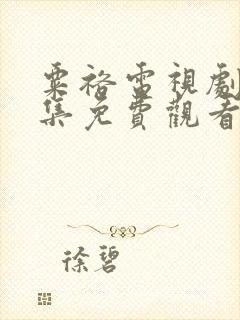 粟裕雷視劇
集免費觀看
徐碧